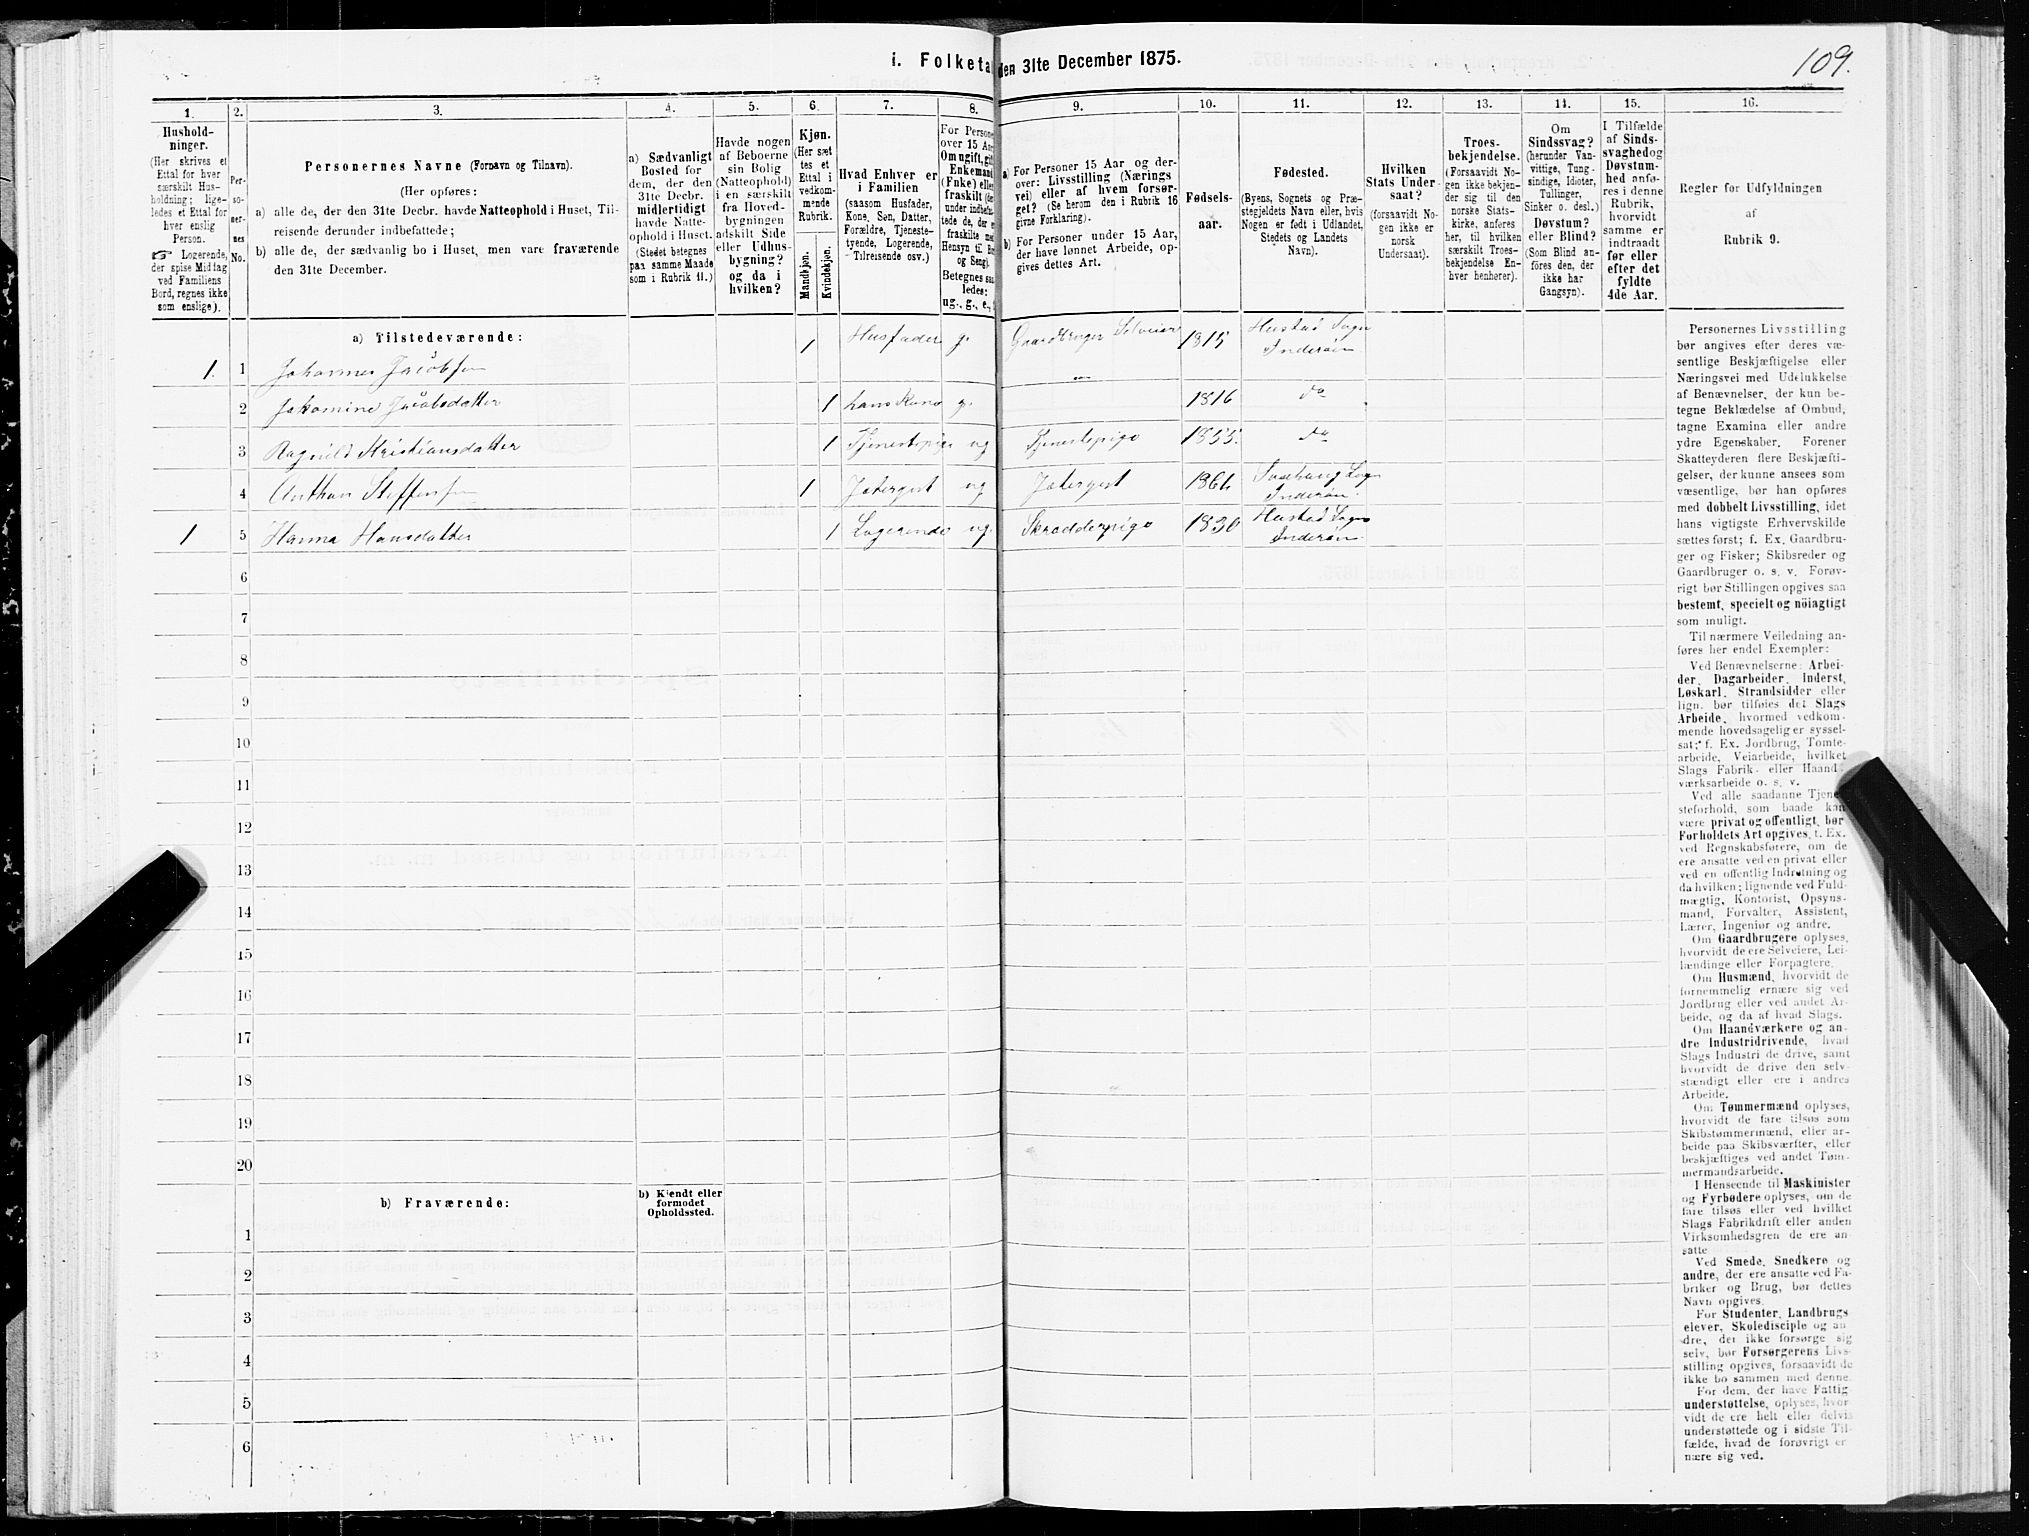 i. Folketa
den 31te December 1875.
109.
1.
2.
3.
4.
5.
6.
7.
8.
9.
10.
11.
12.
13.
14.
15.
16.
Hushold-
ninger.
(Her skrives et
Ettal for hver
særskilt Hus-
holdning; lige-
ledes et Ettal for
hver enslig
Person.
☞ Logerende,
der spise Midtag
ved Familiens
Bord, regnes ikke
som enslige).
Per-
so-
ner-
nes
No.
Personernes Navne (Fornavn og Tilnavn).
(Her opføres:
a) alle de, der den 31te Decbr. havde Natteophold i Huset, Til-
reisende derunder indbefattede;
b) alle de, der sædvanlig bo i Huset, men vare fraværende
den 31te December.
a) Sædvanligt
Bosted for
dem, der den
31te Decbr.
midlertidigt
havde Natte-
ophold i Huset.
(Stedet betegnes
paa samme Maade
som i Rubrik 11.)
Havde nogen
af Beboerne
sin Bolig
(Natteophold)
i en særskilt
fra Hoved-
bygningen
adskilt Side
eller Udhus-
bygning?
og da i
hvilken?
Kjøn.
(Her sæt
tes et
Ettal i
vedkom-
mende
Rubrik.
Mandkjøn.
Kvindekjøn.
Hvad Enhver er
i Familien
(saasom Husfader,
Kone, Søn, Datter,
Forældre, Tjeneste-
tyende, Logerende,
Tilreisende osv.)
For Persone
over 15 Aar
Om ugift, gift
Enkemand
(Enke) eller
fraskilt (der
under indbefat-
tede de, der er
fraskilte med
Hensyn til Bor
og Seng).
Betegnes saa
ledes:
ug., g., e.,
a) For Personer 15 Aar og der-
over: Livsstilling (Nærings
vei) eller af hvem forsør-
get? (Se herom den i Rubrik 16
givne Forklaring).
b) For Personer under 15 Aar,
der have lønnet Arbeide, op-
gives dettes Art.
Fødsels-
aar.
Fødested.
(Byens, Sognets og Præ-
stegjeldets Navn eller, hvis
Nogen er født i Udlandet,
Stedets og Landets
Navn).
Hvilken
Stats Under-
saat?
(forsaavidt No-
gen ikke er
norsk
Undersaat).
Troes-
bekjendelse.
(Forsaavidt No-
gen ikke bekjen-
der sig til den
norske Stats-
kirke, anføres
her, til hvilken
særskilt Troes-
bekjendelse En-
hver henhører).
Om
Sindssvag?
(herunder Van-
vittige, Tung-
sindige, Idioter,
Tullinger,
Sinker o. desl.)
Døvstum?
eller Blind?
(Som Blind an-
föres den, der
ikke har
Gangsyn).
I Tilfælde
af Sinds-
svaghed og
Døvstum-
hed anfø-
res i denne
Rubrik,
hvorvidt
samme er
indtraadt
før eller
efter det
fyldte
4de Aar.
Regler for Udfyldningen
af
Rubrik 9.
a) Tilstedeværende:
1. 1 Johannes Jacobsen 1 Husfader g. Gaardbruger Selveier 1815 Hustad Sogn
Inderøen
2 Jakomine Jacobsdatter 1 hans Kone g. 1816 do
3 Ragnild Kristiansdatter 1 Tjenestepige ug Tjenestepige 1855. do
4 Steffensen 1 ug 186 Sogn
Inderøen.
1 5 Hanna Hansdatter 1 Logerende ug. Skrædderpige 1830 Hustad Sogn
Inderøen
6
7
8
9
10
11
12
13
14
15
16
17
18
19
20
b) Fraværende:
b) Kjendt eller
formodet
Opholdssted.
1
2
3
4
5
6
Personernes Livsstilling
bør angives efter deres væ-
sentlige Beskjæftigelse eller
Næringsvei med Udelukkelse
af Benævnelser, der kun be-
tegne Beklædelse af Ombud,
tagne Examina eller andre
ydre Egenskaber. Forener
Skatteyderen flere Beskjæfti-
gelser, der kunne ansees som
væsentlige, bør han opføres
med dobbelt Livsstilling, idet
hans vigtigste Erhvervskilde
sættes først; f. Ex. Gaardbru-
ger og Fisker; Skibsreder og
Gaardbruger o. s. v. Forøv-
rigt bør Stillingen opgives saa
bestemt, specielt og nöiagtigt
som muligt.
Til nærmere Veiledning an-
føres her endel Exempler:
Ved Benævnelserne: Arbei-
der, Dagarbeider, Inderst,
Løskarl, Strandsidder eller
lign. bør tilføies det Slags
Arbeide, hvormed vedkom-
mende hovedsagelig er syssel-
sat; f. Ex. Jordbrug, Tomte-
arbeide, Veiarbeide, hvilket
Slags Fabrik- eller Haand-
værksarbeide o. s. v.
Ved alle saadanne Tjene-
steforhold, som baade kan
være privat og offentligt, bør
Forholdets Art opgives, t. Ex.
ved Regnskabsførere, om de
ere ansatte ved en privat eller
ved en offentlig Indretning og
da hvilken; lignende ved Fuld-
mægtig, Kontorist, Opsyns-
mand, Forvalter, Assistent,
Lærer, Ingeniør og andre.
Om Gaardbrugere oplyses,
hvorvidt de ere Selveiere, Lei-
lændinge eller Forpagtere.
Om Husmænd, hvorvidt de
fornemmelig ernære sig ved
Jordbrug eller ved andet Ar-
beide, og da af hvad Slags.
Om Haandværkere og an-
dre Industridrivende, hvad
Slags Industri de drive, samt
hvorvidt de drive den selv-
stændigt eller ere i andres
Arbeide.
Om Tømmermænd oplyses,
hvorvidt de fare tilsøs som
Skibstømmermænd, eller ar-
beide paa Skibsværfter, eller
beskjæftiges ved andet Tøm-
mermandsarbeide.
I Henseende til Maskinister
og Fyrbødere oplyses, om de
fare tilsøs eller ved hvilket
Slags Fabrikdrift eller anden
Virksomhedsgren de ere an-
satte
Ved Smede, Snedkere og
andre, der ere ansatte ved Fa-
briker og Brug, bør dettes
Navn opgives.
For Studenter, Landbrugs
elever, Skoledisciple og an
dre, der ikke forsørge sig
selv, bør Forsørgerens Livs-
stilling opgives, forsaavidt de
ikke bo sammen med denne.
For dem, der have Fattig
understøttelse, oplyses, hvor
vidt de ere helt eller delvis
understøttede og i sidste Til-
fælde, hvad de forøvrigt er
nære sig ved.